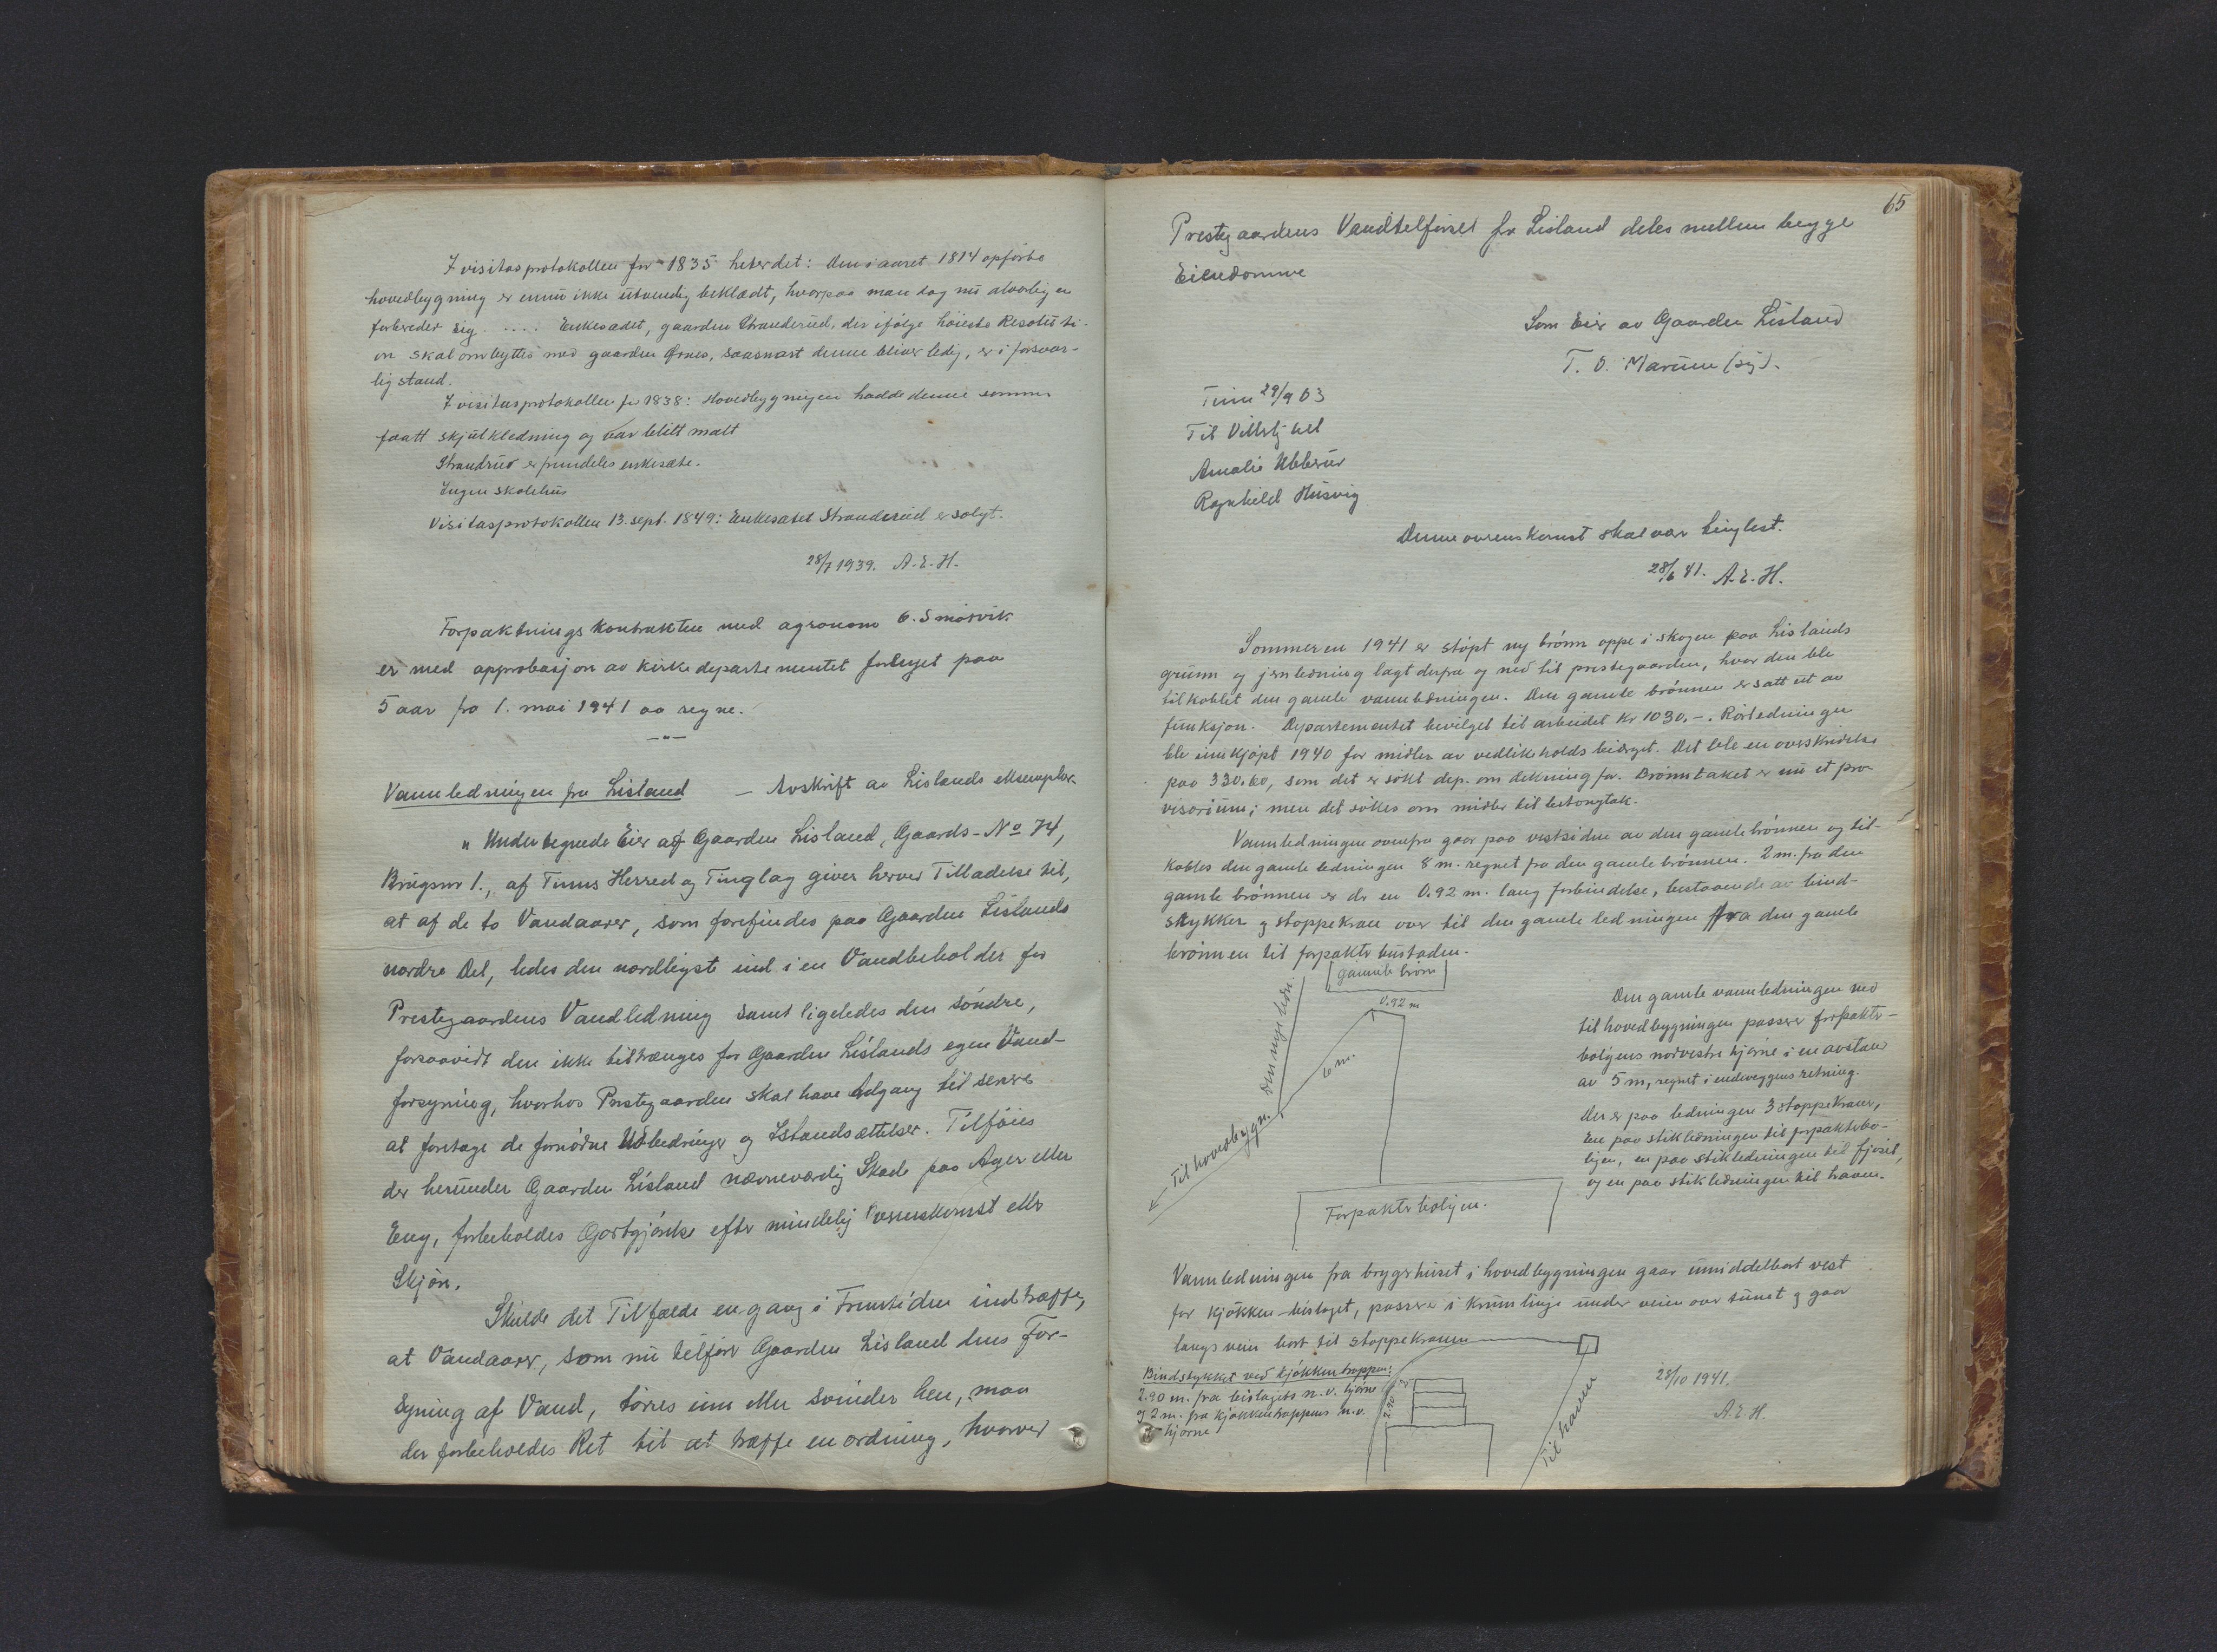 I visitasprotokollen for 1835 heter det: Den i aaret 1814 opførte
hovedbygning er ennu ikke utvendig beklædt, hvorpaa man dog nu alvorlig
forbereder sig..... Enkesædet, gaarden Stranderud, der ifølge høieste Resoluti-
on skal ombyttes med gaarden Ørnes, saasnart denne bliver ledig, er i forsvar-
lig stand.
I visitasprotokollen for 1838: Hovedbygningen hadde denne sommer
faatt skjulkledning og var blitt malt
Strandrud er fremdeles enkesæte.
Ingen skolehus
Visitasprotokollen 13. sept. 1849: Enkesætet Stranderud er solgt.
28/7 1939. A.E.H.
Forpaktningskontrakten med agronom O. Smørvik
er med approbasjon av kirkedepartementet forlenget paa
5 aar fra 1. mai 1941 aa regne.
-"-
Vannledningen fra Lisland - Avskrift av Lislands eksemplar.
"Undertegnede Eier af Gaarden Lisland, Gaards-No 74,
Brugsnr 1., af Tinns Herred og Tinglag giver herved Tilladelse til,
at af de to Vandaarer, som forefindes paa Gaarden Lislands
nordre Del, ledes den nordligste ind i en Vandbeholder for
Prestegaardens Vandledning samt ligeledes den søndre,
forsaavidt den ikke tiltrænges for Gaarden Lislands egen Vand-
forsyning, hvorhos Prestegaarden skal have Adgang til senere
at foretage de fornødne Udbedringer og Istandsættelser. Tilføies
der herunder Gaarden Lisland nævneværdig Skade paa Ager eller
Eng, forbeholdes Godtgjørelse efter mindelig Overenskomst eller
Skjøn.
Skulde det Tilfælde engang i Fremtiden indtræffe,
at Vandaarer, som nu tilfører Gaarden Lisland dens For-
syning af Vand, tørres inn eller svinder hen, maa
der forbeholdes Ret til at træffe en ordning, hvorved
65
Prestegaardens Vandtilførsel fra Lisland deles mellem begge
Eiendomme
Som Eier av Gaarden Lisland
T. O. Marum (sign).
Tinn 29/9 03
Til Vitterlighet
Amalie Ubberud
Ragnhild Husvig
Denne overenskomst skal være tinglest.
28/6 41. A.E.H.
Sommeren 1941 er støpt ny brønn oppe i skogen paa Lislands
grunn og jernledning lagt derfra og ned til prestegaarden, hvor den ble
tilkoblet den gamle vannledningen. Den gamle brønnen er satt ut av
funksjon. Departementet bevilget til arbeidet kr 1030.-. Rørledningen
ble innkjøpt 1940 for midler av vedlikeholdsbidraget. Det ble en overskridelse
paa 330.60, som det er søkt dep. om dekning for. Brønntaket er nu et pro-
visorium; men det søkes om midler til betongtak.
Vannledningen ovenfra gaar paa vestsiden av den gamle brønnen og til-
kobles den gamle ledningen 8 m. regnet fra den gamle brønnen. 2 m. fra den
gamle brønnen er der en 0.92 m. lang forbindelse, bestaaende av bind-
stykker og stoppekran over til den gamle ledningen fra den gamle
brønnen til forpakterbustaden.
gamle brønn
0.92 m
Den nye ledn.
6 m.
Til hovedbygn.
Forpakterboligen.
Den gamle vannledningen ned
til hovedbygningen passerer forpakter-
boligens nordvestre hjørne i en avstand
av 5 m, regnet i endeveggens retning.
Der er paa ledningen 3 stoppekraner,
En paa stikledningen til forpakterbo-
ligen, en paa stikledningen til fjøset,
og en paa stikledningen til haven.
Vannledningen fra bryggerhuset i hovedbygningen gaar umiddelbart vest
for kjøkken-bislaget, passerer i krum linje under veien over tunet og gaar
langs veien bort til stoppekranen
Bindstykket ved kjøkkentrappen:
2.90 m. fra bislagets n.v. hjørne
og 2 m. fra kjøkkentrappens n.v.
hjørne
2.90
Til haven
28/10 1941.
A.E.H.